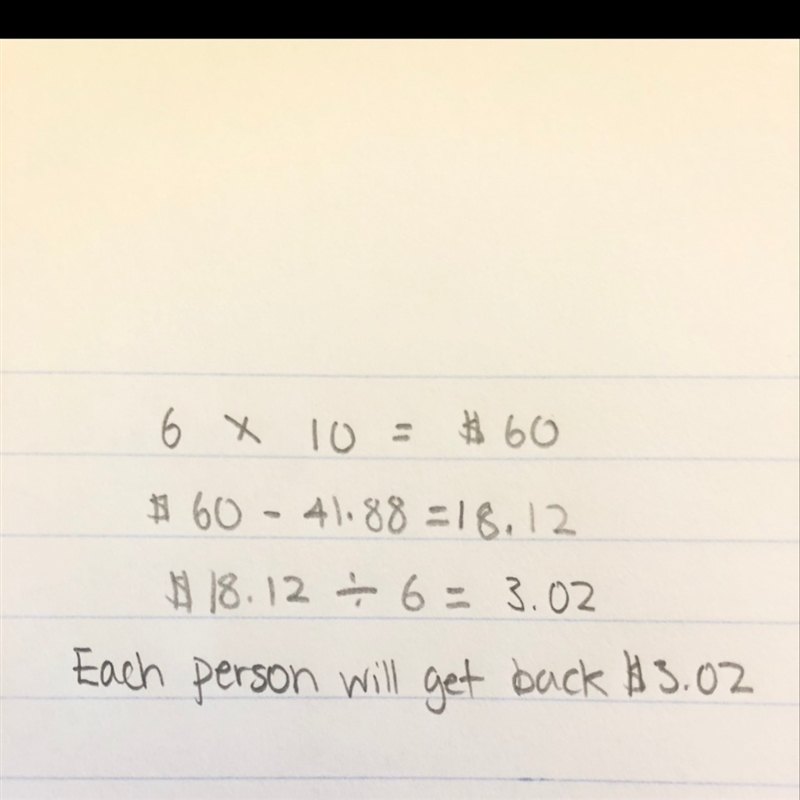 6 × 10 = $60
$60 - 41.88 = 18.12
$18.12 ÷ 6 = 3.02
Each person will get back $3.02